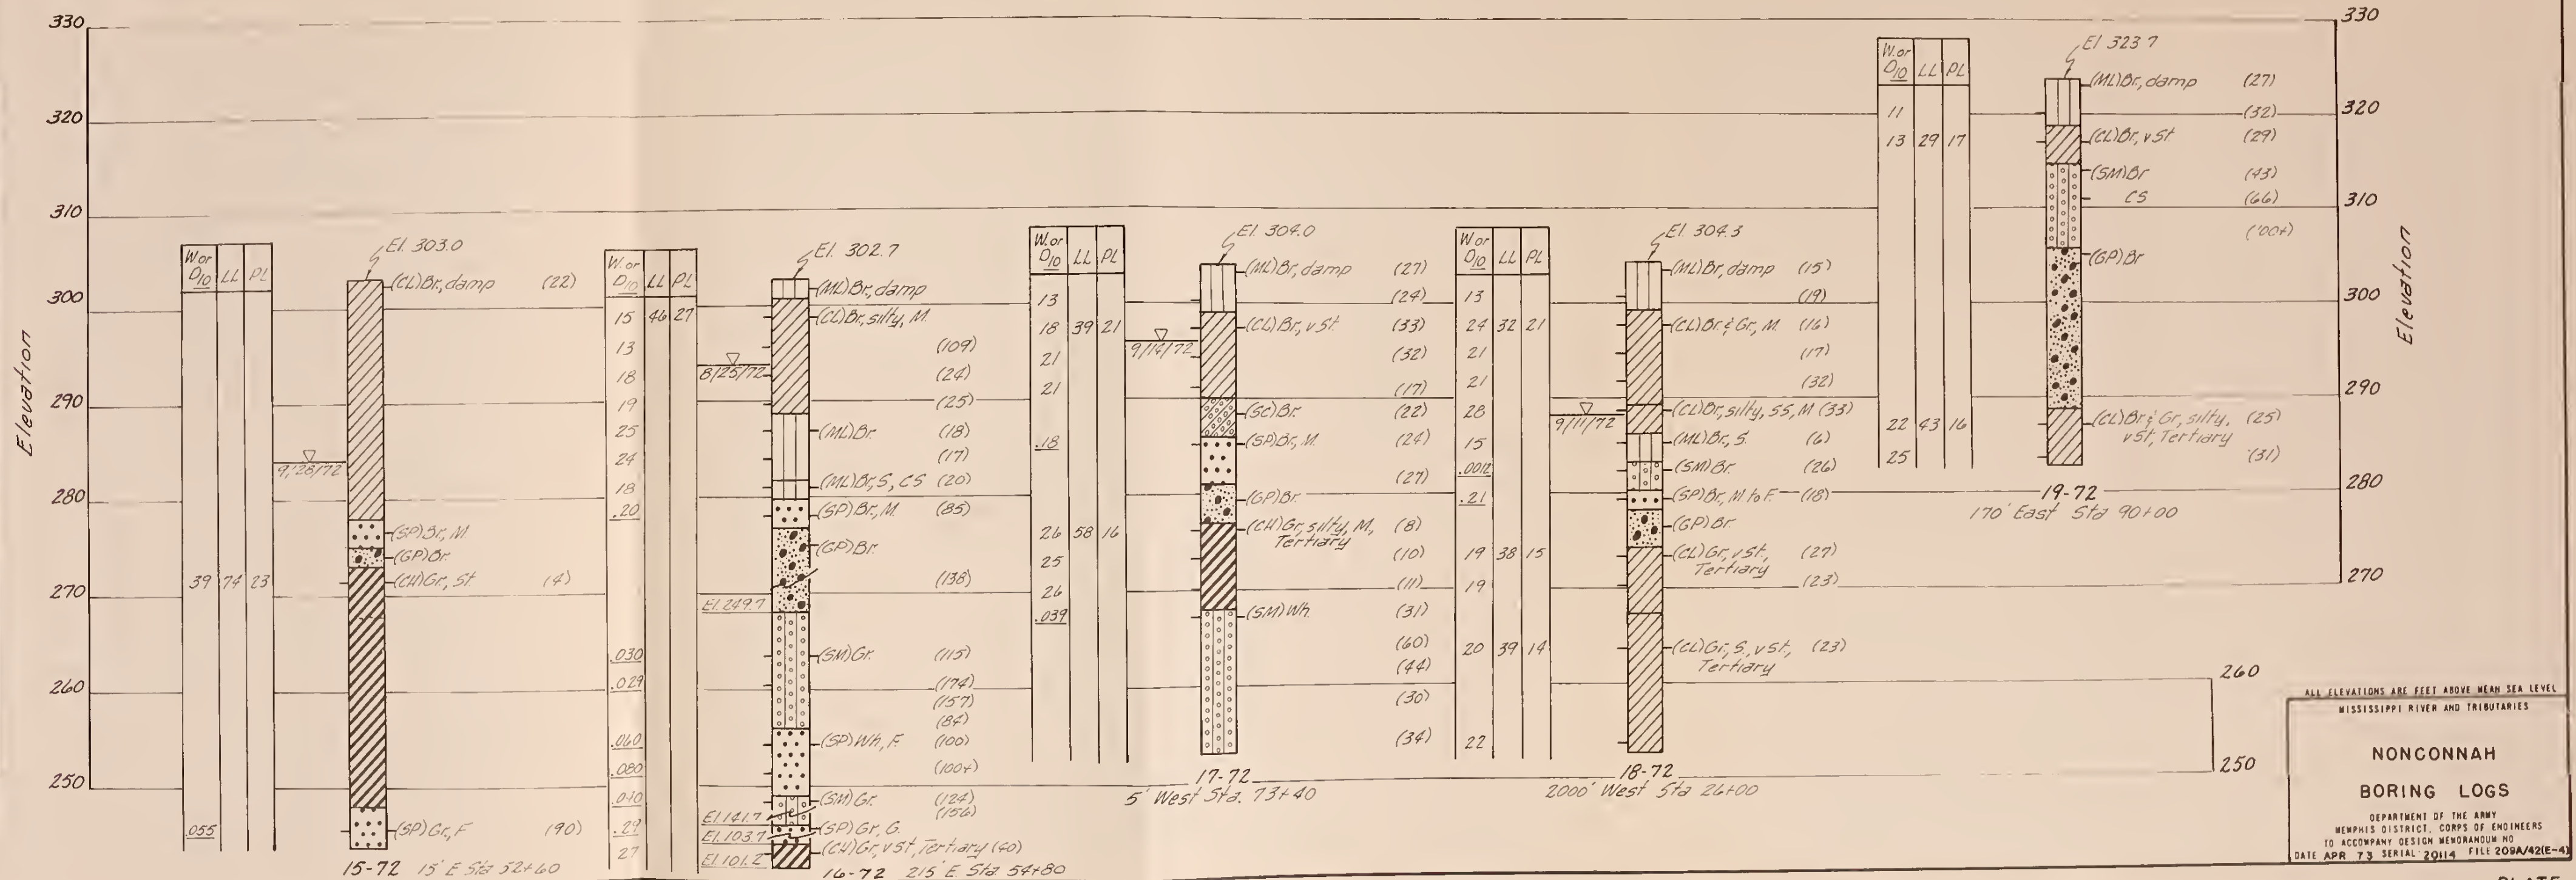 330
320
310
300
290
280
270
260
250
Elevation
W. or D10 LL PL
39 74 23
.055
9/28/72
El. 303.0
(CL)Br, damp (22)
(SP)Br, M
(GP)Br.
(CH)Gr, St. (4)
(SP)Gr, F (90)
15-72 15' E Sta 52+60
W. or D10 LL PL
15 46 27
13
18
19
25
24
18
.20
.030
.029
.060
.080
.040
.29
27
8/25/72
El. 249.7
El. 141.7
El. 103.7
El. 101.2
El. 302.7
(ML)Br, damp
(CL)Br, silty, M.
(109)
(24)
(25)
(ML)Br. (18)
(17)
(ML)Br, S, CS (20)
(SP)Br, M. (85)
(GP)Br.
(138)
(SM)Gr. (115)
(174)
(157)
(84)
(SP)Wh, F. (100)
(100+)
(SM)Gr. (124)
(156)
(SP)Gr, G.
(CH)Gr, vSt, Tertiary (40)
16-72 215' E. Sta 54+80
W. or D10 LL PL
13
18 39 21
21
21
.18
26 58 16
25
26
.039
9/14/72
El. 304.0
(ML)Br, damp (27)
(24)
(CL)Br, v St. (33)
(32)
(17)
(SC)Br. (22)
(SP)Br, M. (24)
(27)
(GP)Br.
(CH)Gr, silty, M, (8)
Tertiary
(10)
(11)
(SM)Wh. (31)
(60)
(44)
(30)
(34)
17-72
5' West Sta. 73+40
W. or D10 LL PL
13
24 32 21
21
21
28
15
.0012
.21
19 38 15
19
20 39 14
22
9/11/72
El. 304.3
(ML)Br, damp (15)
(19)
(CL)Br & Gr, M. (16)
(17)
(32)
(CL)Br, silty, SS, M (33)
(ML)Br, S. (6)
(SM)Br. (26)
(SP)Br, M to F. (18)
(GP)Br.
(CL)Gr, vSt., (27)
Tertiary
(23)
(CL)Gr, S, vSt., (23)
Tertiary
18-72
2000' West Sta 26+00
W. or D10 LL PL
11
13 29 17
22 43 16
25
El 323.7
(ML)Br, damp (27)
(32)
(CL)Br, vSt. (29)
(SM)Br (43)
CS (66)
(100+)
(GP)Br
(CL)Br & Gr, silty, (25)
vSt, Tertiary
(31)
19-72
170' East Sta 90+00
330
320
310
300
290
280
270
260
250
Elevation
ALL ELEVATIONS ARE FEET ABOVE MEAN SEA LEVEL
MISSISSIPPI RIVER AND TRIBUTARIES
NONCONNAH
BORING LOGS
DEPARTMENT OF THE ARMY
MEMPHIS DISTRICT, CORPS OF ENGINEERS
TO ACCOMPANY DESIGN MEMORANDUM NO
DATE APR 73 SERIAL 20114 FILE 209A/42(E-4)